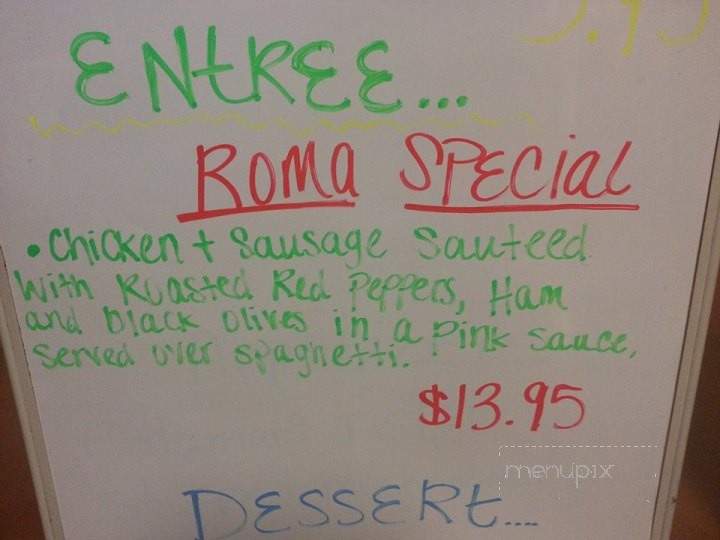 ENtREE...
ROMA SPECial
• Chicken + Sausage Sauteed
With Roasted Red Peppers, Ham
and black olives in a Pink Sauce,
Served over spaghetti.
$13.95
menupix
DESSERt....